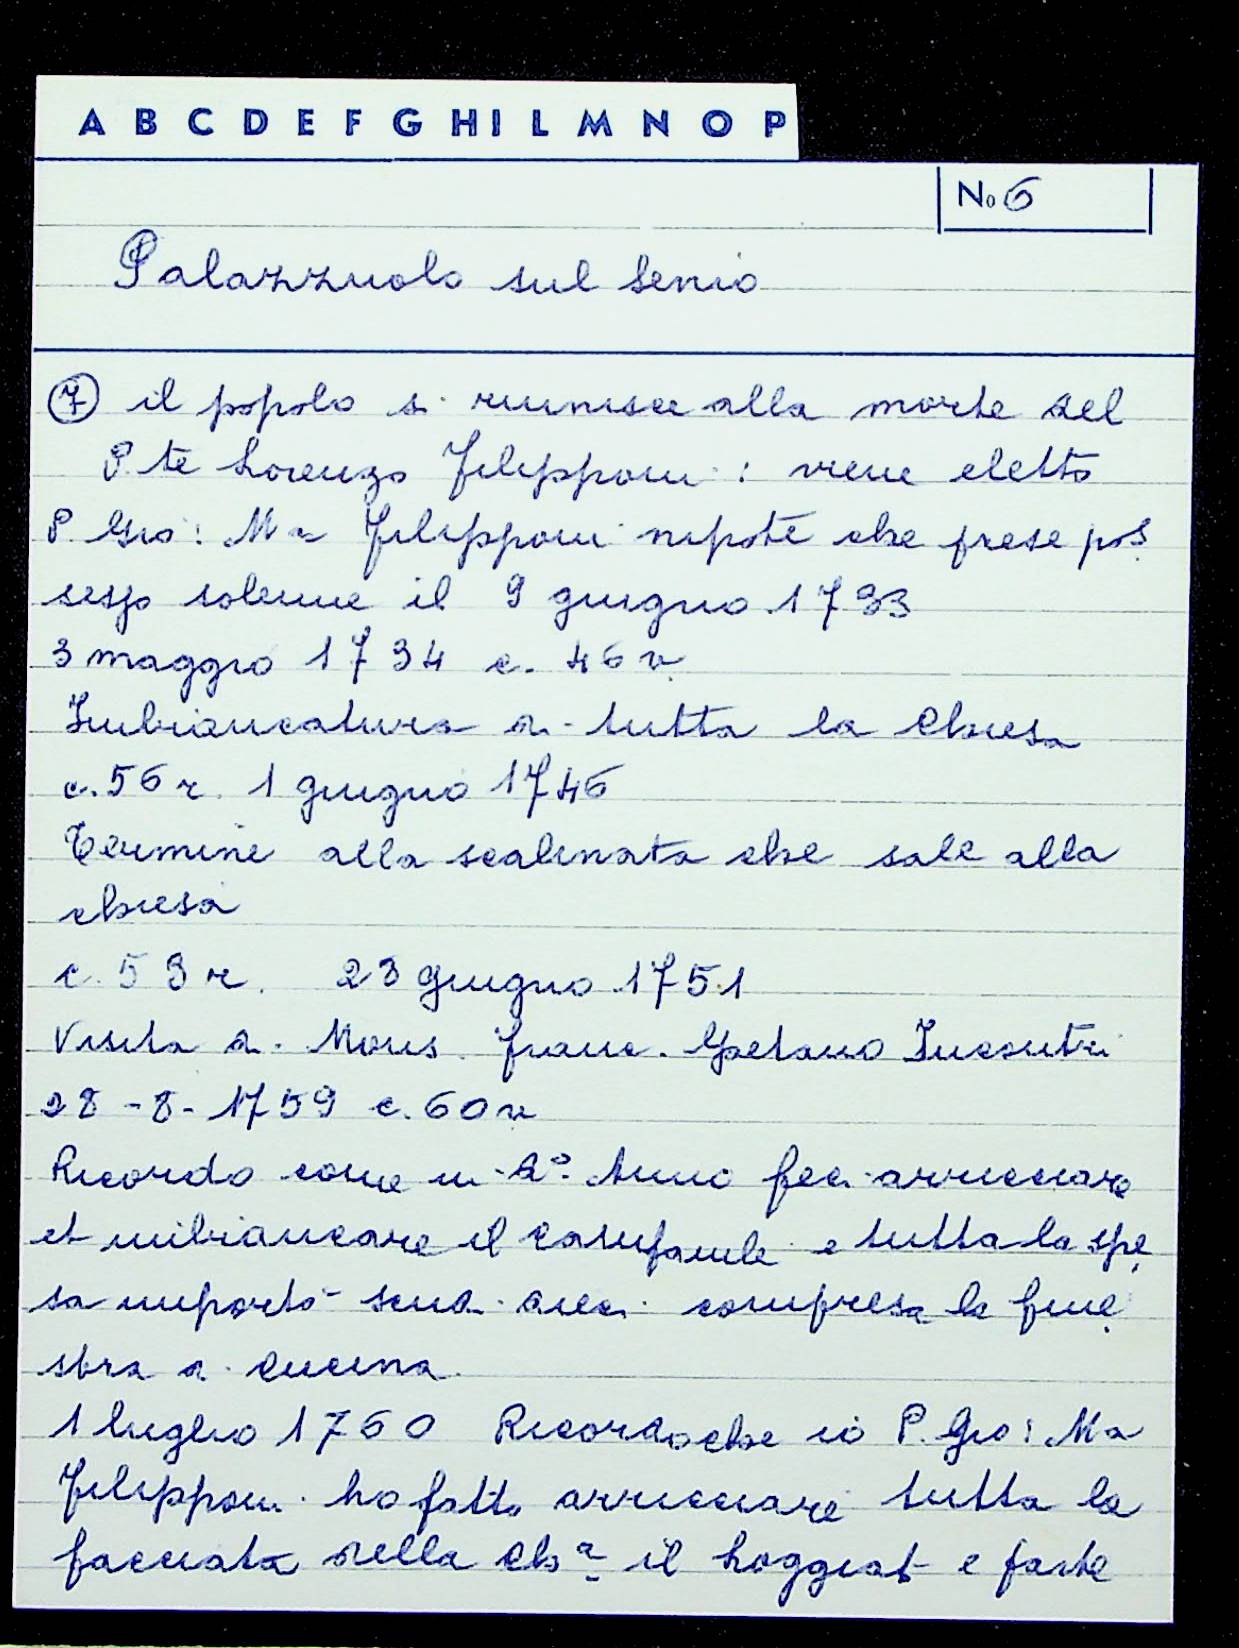 A B C D E F G H I L M N O P
No 6
Palazzuolo sul Senio
7 il popolo si riunisce alla morte del
P. te Lorenzo Filipponi : viene eletto
P. Gio: Ma Filipponi nipote che prese pos
sesso solenne il 9 giugno 1733
3 maggio 1734 c. 46 v
Imbiancatura di tutta la Chiesa
c. 56 r. 1 giugno 1746
Termine alla scalinata che sale alla
chiesa
c. 59 r. 23 giugno 1751
Visita di Mons. Franc. Gaetano Incontri
28-8-1759 c. 60 v
Ricordo come in do Anno feci arricciare
et imbiancare il Campanile e tutta la spe
sa importò scudi dieci compresa la fine
stra di Cucina
1 luglio 1760 Ricordo che io P. Gio: Ma
Filipponi ho fatto arricciare tutta la
facciata della Cha il Loggiat e farte